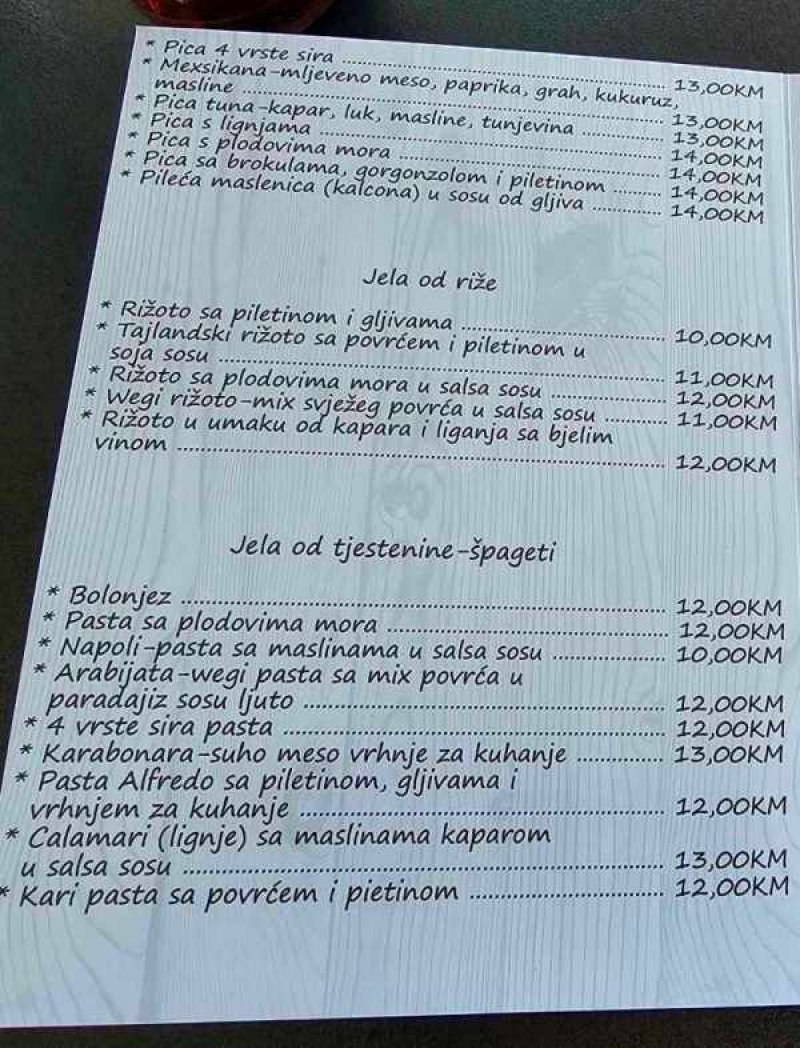 * Pica 4 vrste sira ........ 13,00KM
* Mexsikana-mljeveno meso, paprika, grah, kukuruz,
masline ........ 13,00KM
* Pica tuna-kapar, luk, masline, tunjevina ........ 13,00KM
* Pica s lignjama ........ 14,00KM
* Pica s plodovima mora ........ 14,00KM
* Pica sa brokulama, gorgonzolom i piletinom ........ 14,00KM
* Pileća maslenica (kalcona) u sosu od gljiva ........ 14,00KM
Jela od riže
* Rižoto sa piletinom i gljivama ........ 10,00KM
* Tajlandski rižoto sa povrćem i piletinom u
soja sosu ........ 11,00KM
* Rižoto sa plodovima mora u salsa sosu ........ 12,00KM
* Wegi rižoto-mix svježeg povrća u salsa sosu ........ 11,00KM
* Rižoto u umaku od kapara i liganja sa bjelim
vinom ........ 12,00KM
Jela od tjestenine-špageti
* Bolonjez ........ 12,00KM
* Pasta sa plodovima mora ........ 12,00KM
* Napoli-pasta sa maslinama u salsa sosu ........ 10,00KM
* Arabijata-wegi pasta sa mix povrća u
paradajiz sosu ljuto ........ 12,00KM
* 4 vrste sira pasta ........ 12,00KM
* Karabonara-suho meso vrhnje za kuhanje ........ 13,00KM
* Pasta Alfredo sa piletinom, gljivama i
vrhnjem za kuhanje ........ 12,00KM
* Calamari (lignje) sa maslinama kaparom
u salsa sosu ........ 13,00KM
* Kari pasta sa povrćem i pietinom ........ 12,00KM